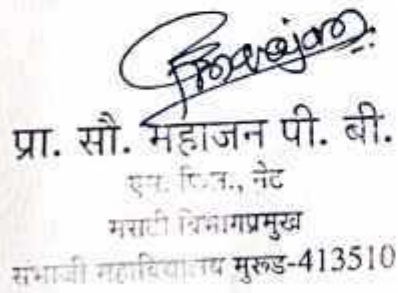 प्रा. सौ. महाजन पी. बी.
एम. फिल., नेट
मराठी विभागप्रमुख
संभाजी महाविद्यालय मुरूड-413510